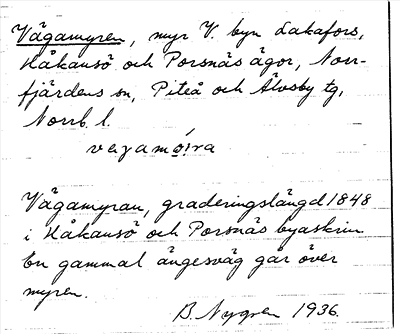 Vägamyren, myr V. byn Lakafors,
Håkansö och Porsnäs ägor, Norr-
fjärdens sn, Piteå och Älvsby tg,
Norrb. l.
vegamo̩i̇ra
Vägamyran, graderingslängd 1848
i Håkansö och Porsnäs byaskrin
En gammal ängesväg går över
myren.
B. Nygren 1936.